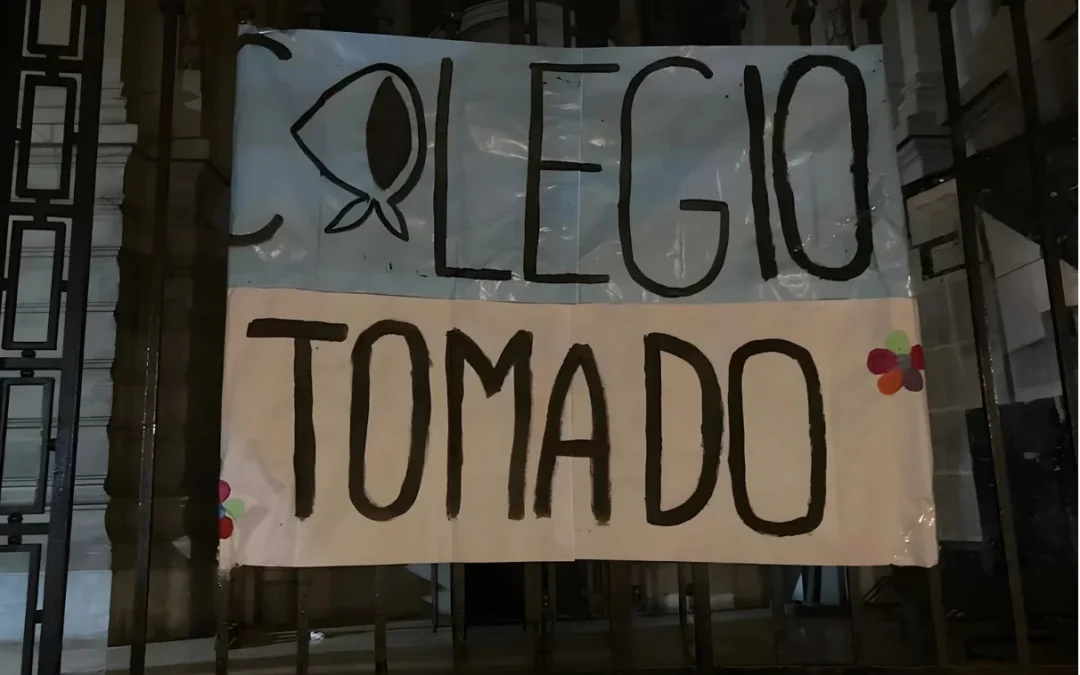 COLEGIO
TOMADO